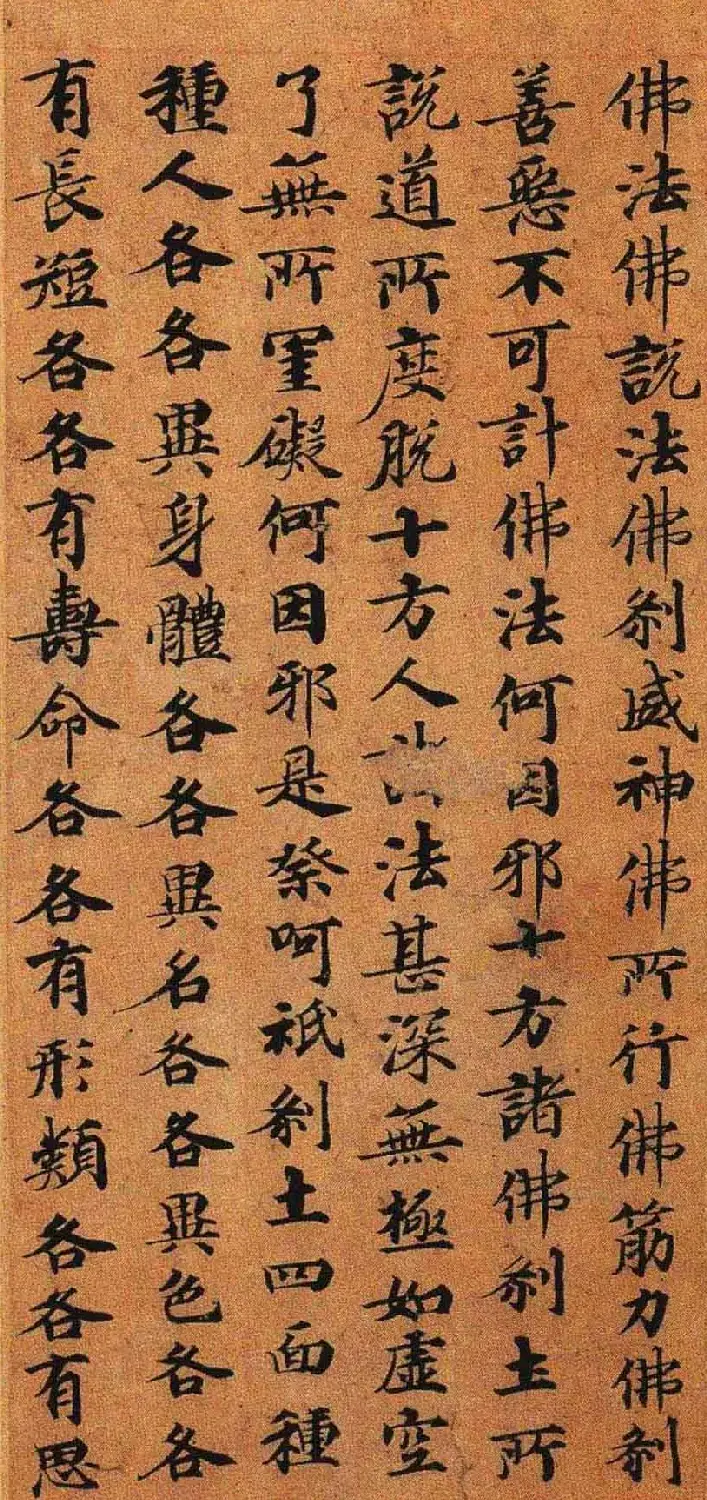 佛法佛說法佛刹威神佛所行佛筋力佛刹
善惡不可計佛法何因邪十方諸佛刹土所
說道所度脫十方人法甚深無極如虛空
了無所罣礙何因邪是祭呵祇刹土四面種
種人各各異身體各各異名各各異色各各
有長短各各有壽命各各有形類各各有思